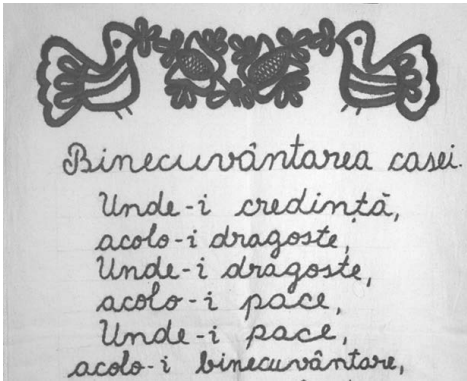 Binecuvântarea casei.
Unde-i credință,
acolo-i dragoste,
Unde-i dragoste,
acolo-i pace,
Unde-i pace,
acolo-i binecuvântare,